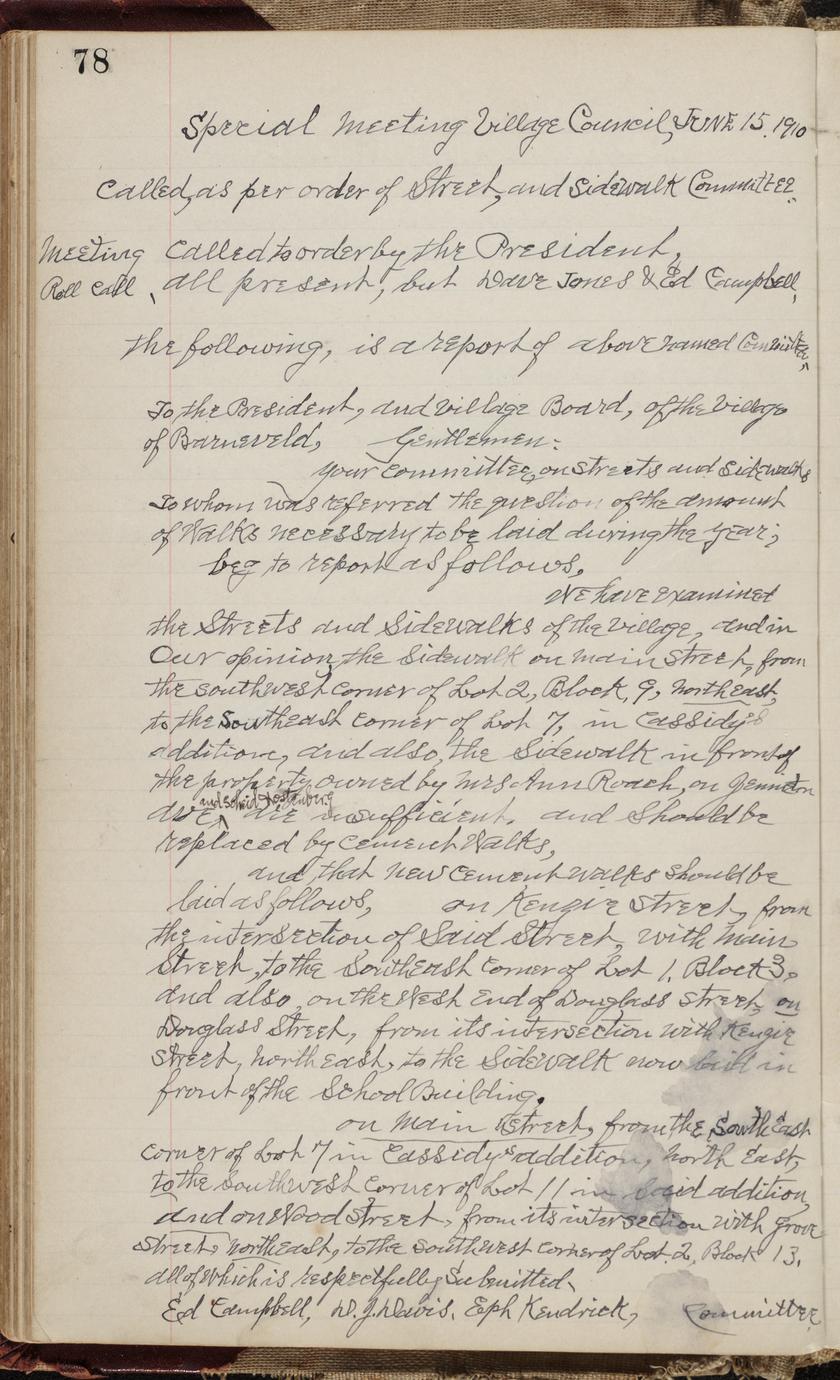 78
Special Meeting Village Council, JUNE 15. 1910
Called, as per order of Street, and Sidewalk Committee.
Meeting Called to order by the President,
Roll Call, all present, but Dave Jones & Ed Campbell,
the following, is a report of above named Committee,
To, the President, and Village Board, of the Village
of Barneveld, Gentlemen:
your committee, on streets and Sidewalks
To whom was referred the question of the amount
of Walks necessary to be laid during the year;
beg to report as follows,
We have examined
the Streets and Sidewalks of the Village, and in
Our opinion, the Sidewalk on main Street, from
the southwest corner of Lot 2, Block, 9, north east,
to the Southeast corner of Lot 7, in Cassidy's
addition, and also, the Sidewalk in front of
the property owned by Mrs Ann Roach, on Jenniton
and
Ave, are insufficient, and Should be
replaced by cement Walks,
and that new cement walks should be
laid as follows, on Kengie Street, from
the intersection of Said Street, with Main
Street, to the Southeast corner of Lot 1, Block 3,
and also, on the West End of Douglass street, on
Douglass Street, from its intersection with Kengie
Street, north east, to the Sidewalk now laid in
front of the School Building.
on Main Street, from the South East
corner of Lot 7 in Cassidy's addition, north East,
to the Southwest corner of Lot 11 in said addition,
and on Wood Street, from its intersection with Grove
Street, north east, to the Southwest corner of Lot. 2, Block 13.
all of Which is respectfully Submitted,
Ed Campbell, D. J. Davis, Eph Kendrick, Committee